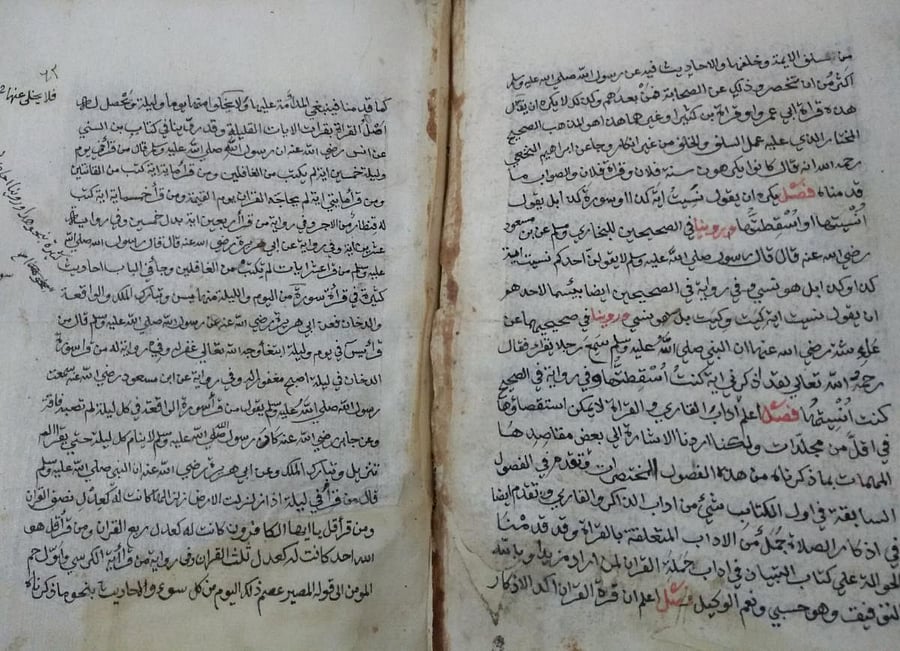 من سلف الامة وخلفها والاحاديث فيه عن رسول الله صلى الله عليه وسلم
أكثر من ان تنحصر وكذلك عن الصحابة فمن بعدهم وكذلك لا يكره ان يقال
هذه قراة ابي عمرو او قراة بن كثير او غيرهما هذا هو المذهب الصحيح
المختار الذي عليه عمل السلف والخلف من غير انكار وجا عن ابراهيم النخعي
رحمه الله انه قال كانوا يكرهون سنة فلان وقراة فلان والصواب ما
قدمناه فصل يكره ان يقول نسيت اية كذا او سورة كذا بل يقول
أنسيتها او اسقطتها وروينا في الصحيحين للبخاري وسلم عن بن مسعود
رضي الله عنه قال قال رسول صلى الله عليه وسلم لا يقولن احدكم نسيت اية
كذا وكذا بل هو نسي وفي رواية في الصحيحين ايضا بيسما لاحدهم
ان يقول نسيت اية كيت وكيت بل هو نسي وروينا في صحيحيهما عن
عايشة رضي الله عنها ان النبي صلى الله عليه وسلم سمع رجلا يقرا فقال
رحمه الله تعالى لقد اذكرني اية كنت أسقطتها وفي رواية في الصحيح
كنت أنسيتها فصل اعلم اداب القاري والقراة لا يمكن استقصاؤها
في اقل من مجلدات ولكنا اردنا الاشارة الى بعض مقاصدها
المهمات بما ذكرناه من هذه الفصول المختصرات وقد تقدم في الفصول
السابقة في اول الكتاب شيء من اداب الذاكر والقاري وتقدم ايضا
في اذكار الصلاة جمل من الاداب المتعلقة بالقراة وقد قدمنا
الحوالة على كتاب التبيان في اداب حملة القران لمن اراد مزيدا وبالله
التوفيق وهو حسبي ونعم الوكيل فصل اعلم ان قراة القران اكد الاذكار
٦٢
فلا يخلى عنها
كما قدمنا فينبغي المداومة عليها ولا يخلو عنها يوما وليلة ويحصل له
اصل القراة بقراة الايات القليلة وقد روينا في كتاب بن السني
عن انس رضي الله عنه ان رسول الله صلى الله عليه وسلم قال من قرا في يوم
وليلة خمسين اية لم يكتب من الغافلين ومن قرا ماية اية كتب من القانتين
ومن قرا مايتي اية لم يحاجه القران يوم القيمة ومن قرا خمسماية اية كتب
له قنطار من الاجر وفي رواية من قرا اربعين اية بدل خمسين وفي رواية
عشرين اية وفي رواية عن ابي هريرة رضي الله عنه قال قال رسول الله صلى الله
عليه وسلم من قرا عشر ايات لم يكتب من الغافلين وجا في الباب احاديث
كثيرة في قراة سورة من اليوم والليلة منها يس وتبارك الملك والواقعة
والدخان فعن ابي هريرة رضي الله عنه عن رسول الله صلى الله عليه وسلم قال من
قرا يس في يوم وليلة ابتغا وجه الله تعالى غفر له وفي رواية له من قرا سورة
الدخان في ليلة اصبح مغفورا له وفي رواية عن ابن مسعود رضي الله عنه سمعت
رسول الله صلى الله عليه وسلم يقول من قرا سورة الواقعة في كل ليلة لم تصبه فاقة
وعن جابر رضي الله عنه كان رسول الله صلى الله عليه وسلم لا ينام كل ليلة حتى يقرا الم
تنزيل وتبارك الملك وعن ابي هريرة رضي الله عنه ان النبي صلى الله عليه وسلم
قال من قرا في ليلة اذا زلزلت الارض زلزالها كانت له كعدل نصف القران
ومن قرا قل يا ايها الكافرون كانت له كعدل ربع القران ومن قرا قل هو
الله احد كانت له كعدل ثلث القران وفي رواية من قرا اية الكرسي واول حم
المومن الى قوله المصير عصم ذلك اليوم من كل سوء والاحاديث بنحو ما ذكرناه